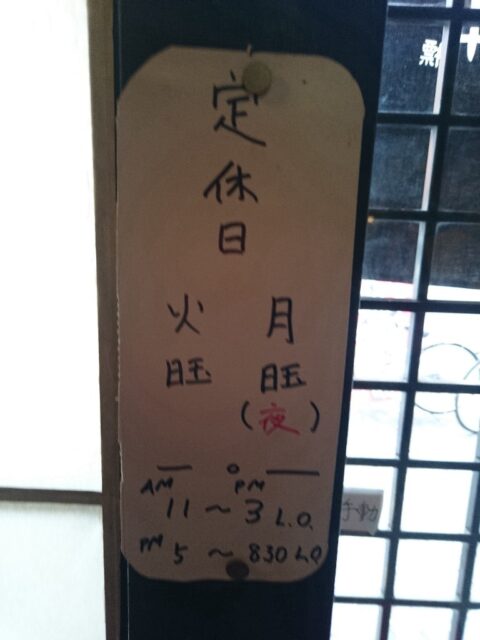 定休日
月曜(夜)
火曜
AM PM
11〜3 L.O.
PM 5〜830 L.O
手動